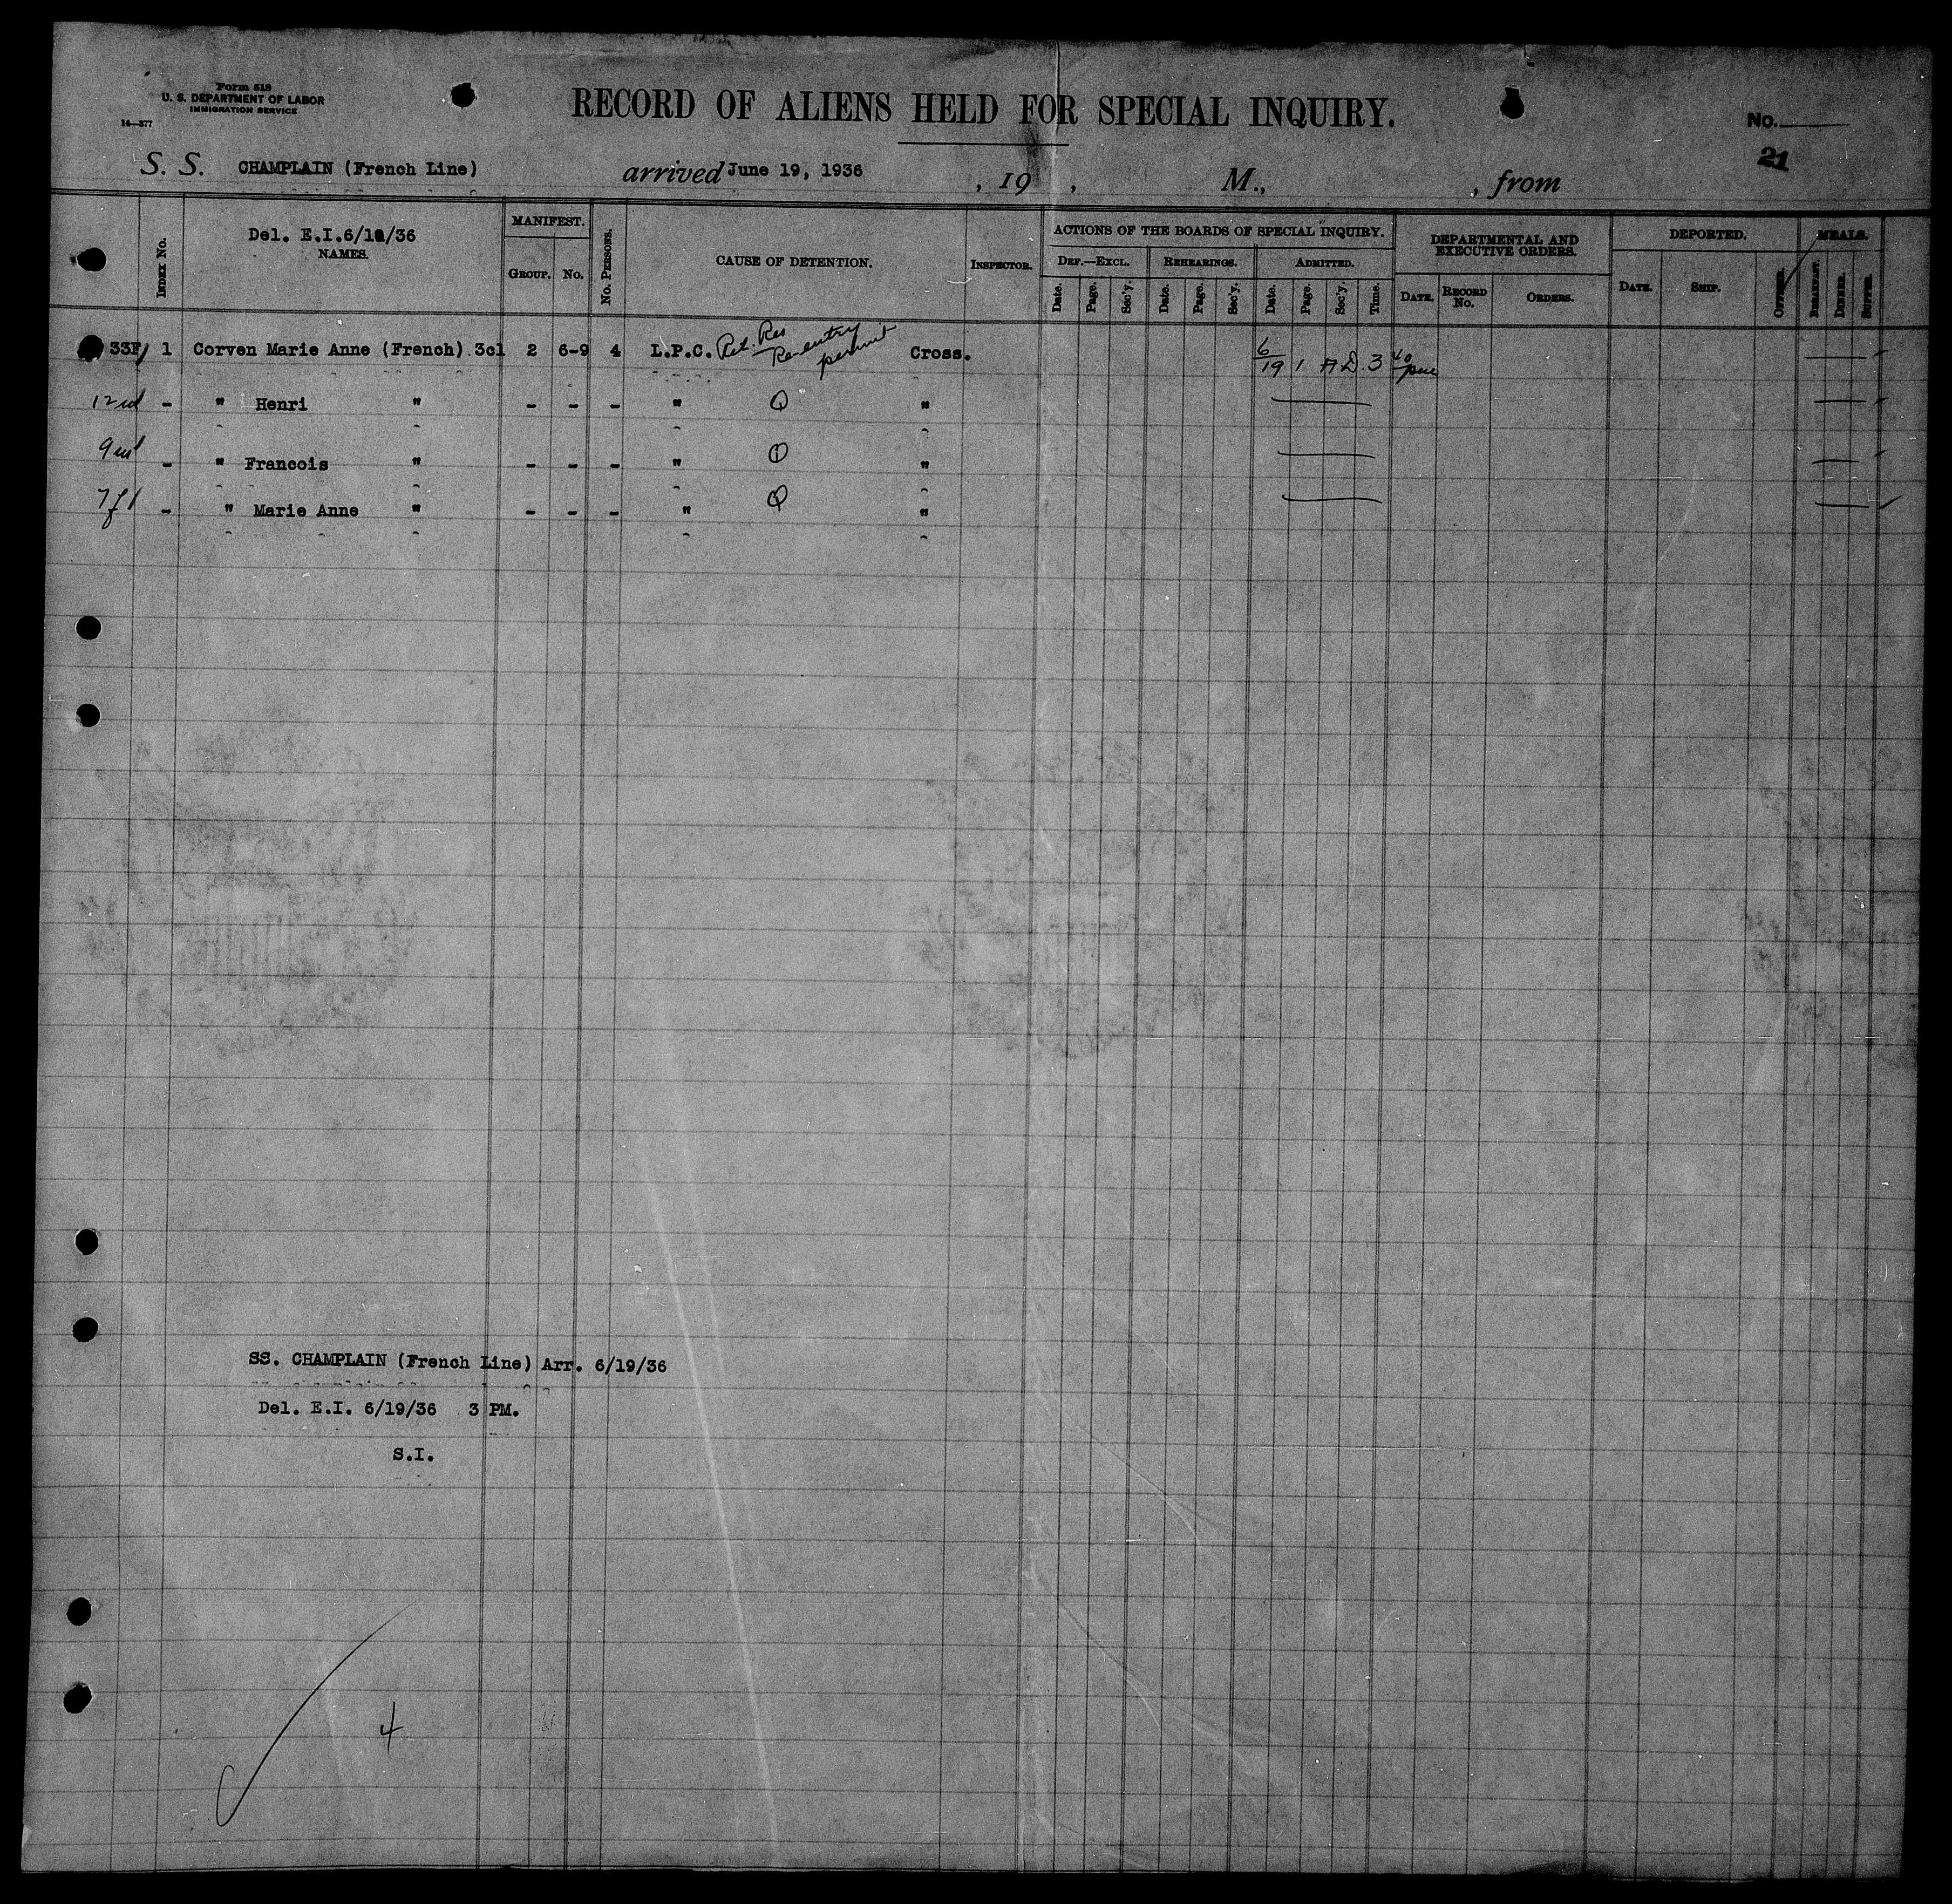 Form 518
U. S. DEPARTMENT OF LABOR
IMMIGRATION SERVICE
14—377
RECORD OF ALIENS HELD FOR SPECIAL INQUIRY.
No.
21
S. S. CHAMPLAIN (French Line) arrived June 19, 1936 , 19 , M., , from
INDEX No. Del. E.I.6/19/36 NAMES. MANIFEST. GROUP. No. No. PERSONS. CAUSE OF DETENTION. INSPECTOR.
ACTIONS OF THE BOARDS OF SPECIAL INQUIRY.
DEF.—EXCL. REHEARINGS. ADMITTED.
Date. Page. Sec'y. Date. Page. Sec'y. Date. Page. Sec'y. Time.
DEPARTMENTAL AND EXECUTIVE ORDERS.
DATE. RECORD No. ORDERS.
DEPORTED.
DATE. SHIP. OFFICER.
MEALS.
BREAKFAST. DINNER. SUPPER.
33F 1 Corven Marie Anne (French) 3cl 2 6-9 4 L.P.C. Ret. Res Re-entry permit Cross. 6/19 1 AD 3 40 pm
12 - " Henri " - - - " " 
9m - " Francois " - - - " "
7f - " Marie Anne " - - - " "
SS. CHAMPLAIN (French Line) Arr. 6/19/36
Del. E.I. 6/19/36 3 PM.
S.I.
4